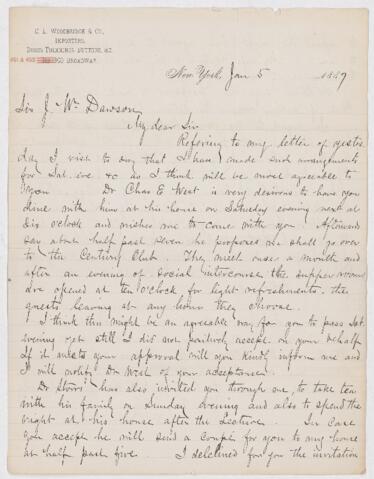 C. L. WOODBRIDGE & CO.
IMPORTERS
DRESS TRIMMINGS, BUTTONS, &C.
BROADWAY.
New York, Jan 5 1887
Sir J. Wm Dawson
My dear Sir
Refering to my letter of yester
day I wish to say that I have made such arrangements
for Sat. eve. &c as I think will be most agreeable to
you. Dr Chas E West is very desirous to have you
dine with him at his house on Saturday evening next at
six o'clock and wishes me to come with you. Afterward
say about half past seven he proposes we shall go over
to the Century Club. They meet once a month and
after an evening of social intercourse the supper rooms
are opened at ten o'clock for light refreshments, the
guests leaving at any hour they choose.
I think this might be an agreeable way for you to pass Sat.
evening yet still I did not positively accept on your behalf
If it meets your approval will you kindly inform me and
I will notify Dr West of your acceptance.
Dr Storrs has also invited you through me to take tea
with his family on Sunday evening and also to spend the
night at his house after the Lecture. In case
you accept he will send a coupé for you to my house
at half past five. I declined for you the invitation